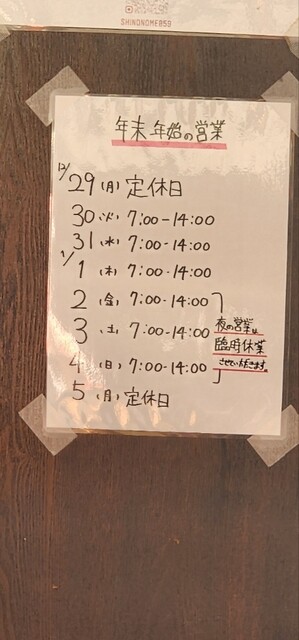 SHINONOME859
年末年始の営業
12/29(月) 定休日
30(火) 7:00-14:00
31(水) 7:00-14:00
1/1(木) 7:00-14:00
2(金) 7:00-14:00
3(土) 7:00-14:00
4(日) 7:00-14:00
夜の営業は
臨時休業
させていただきます。
5(月) 定休日